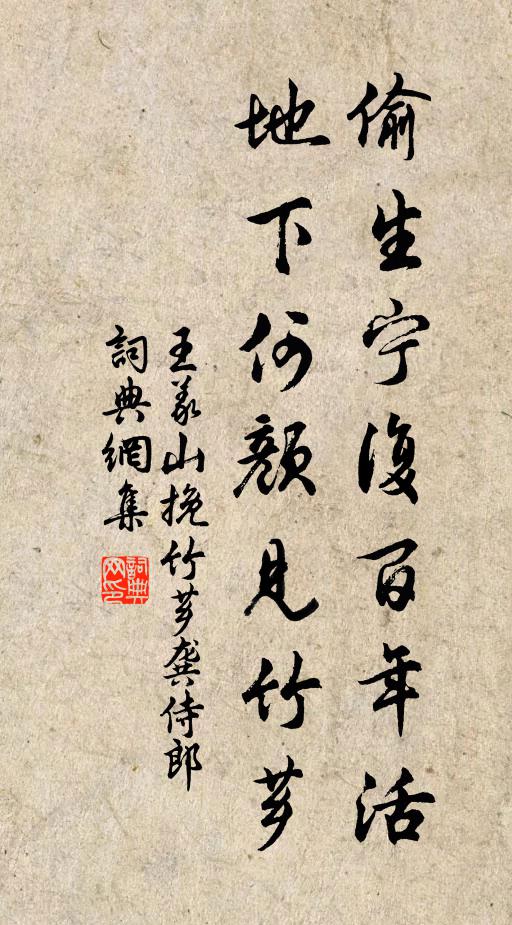 偷生宁復百年活
地下何顏見竹芗
王義山挽竹芗龔侍郎
詞典網集
詞典網印